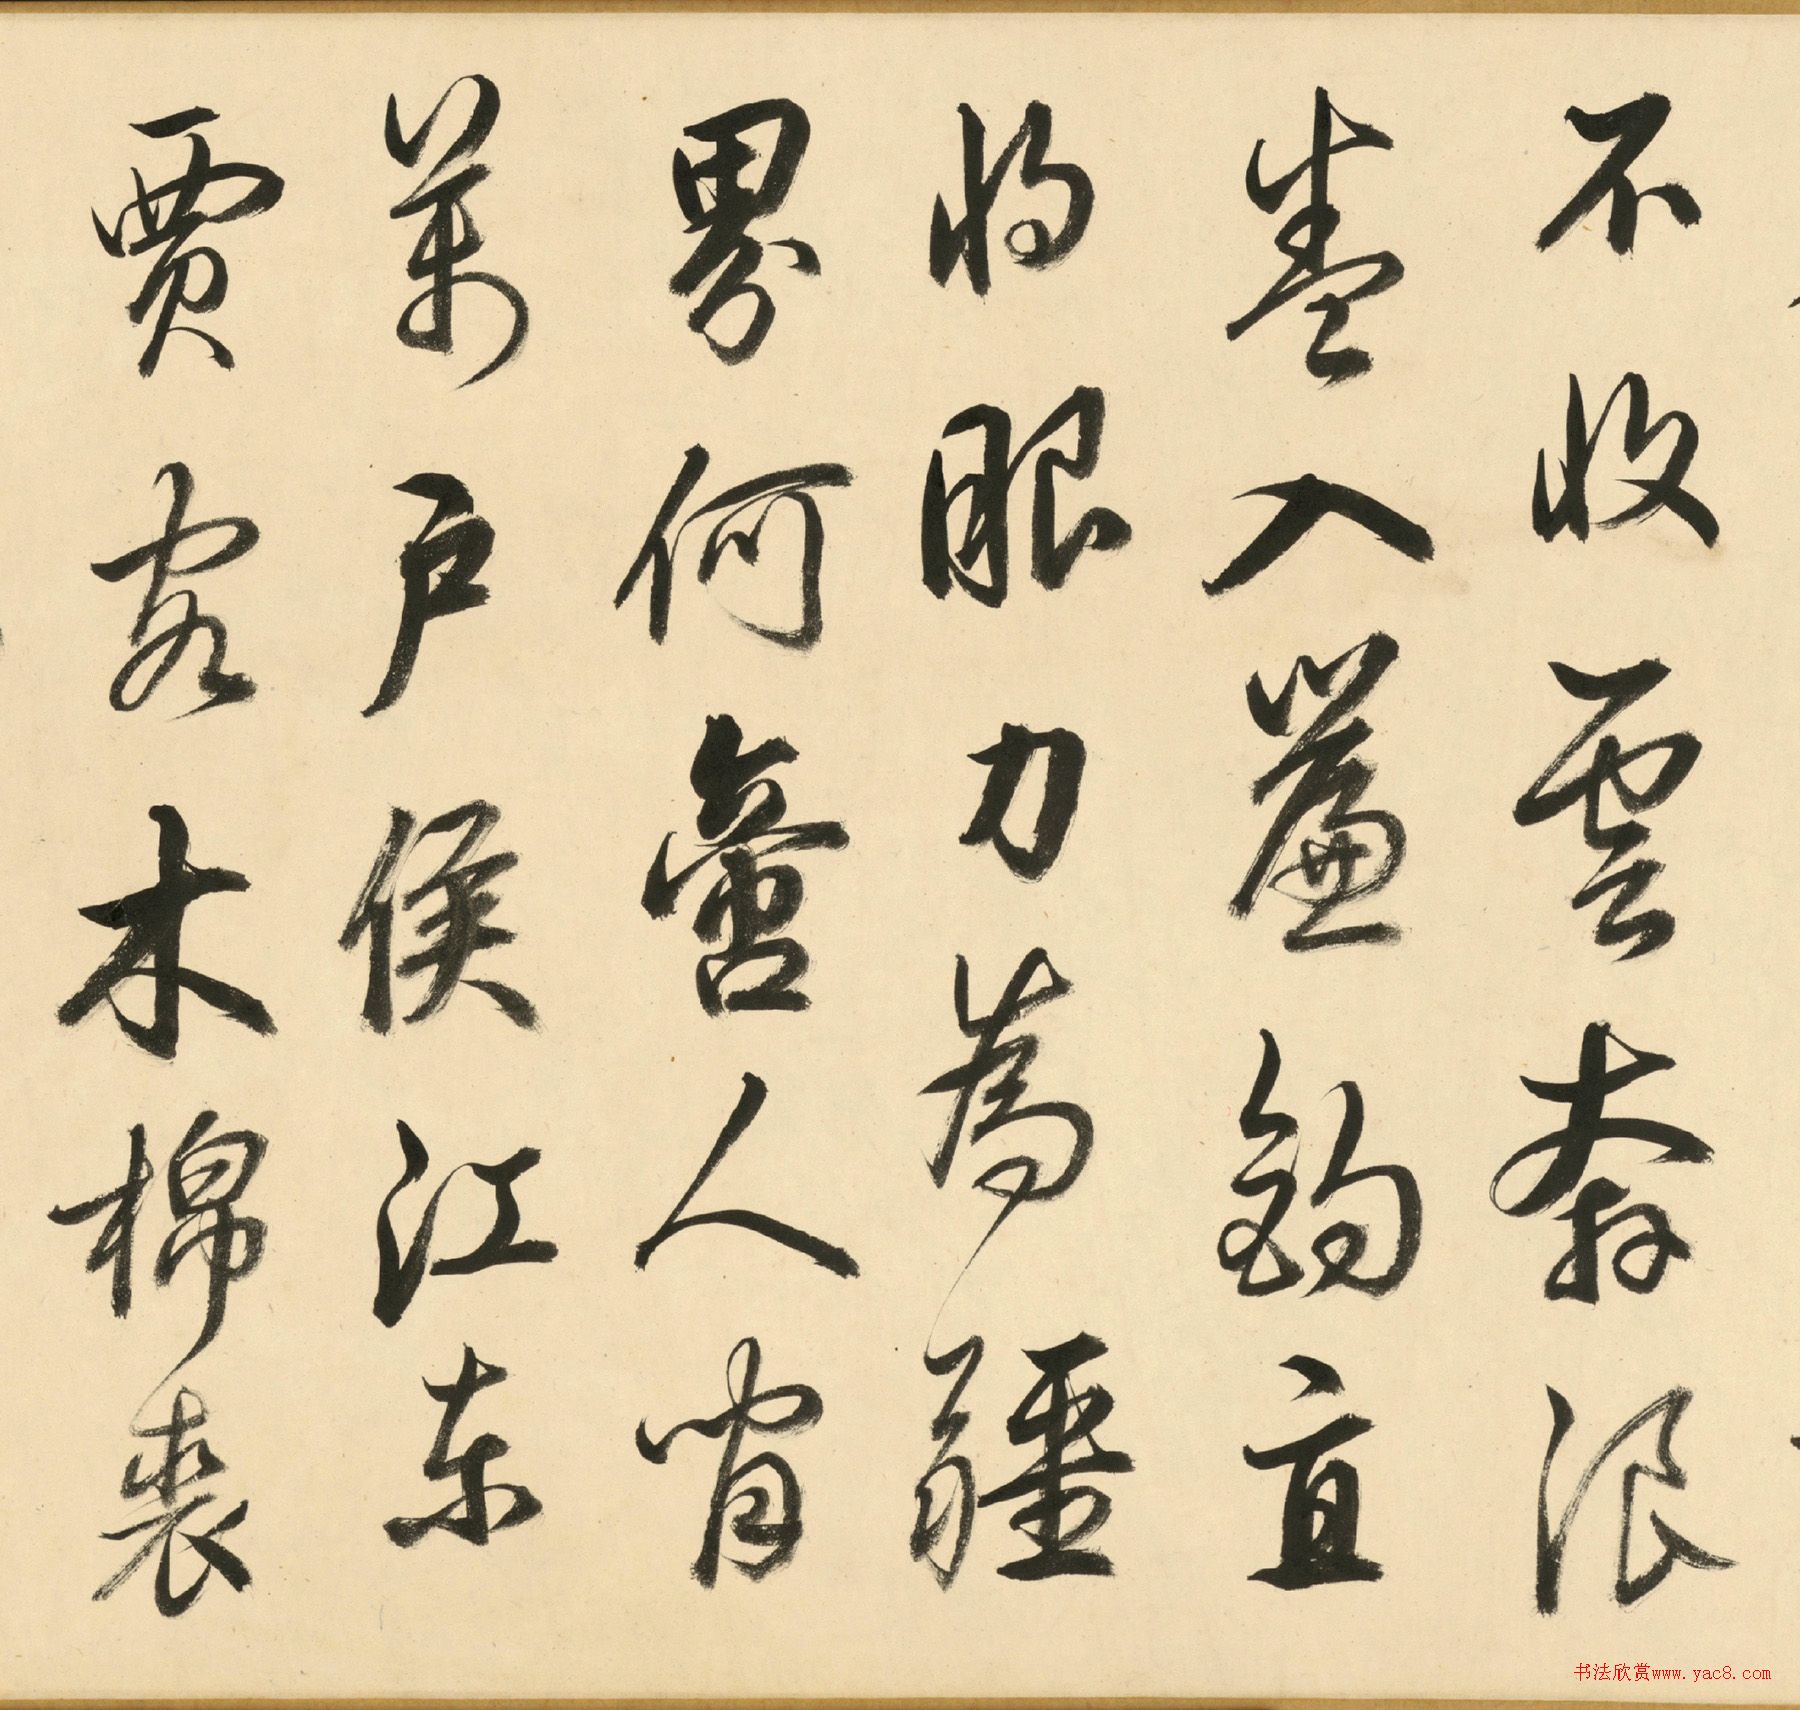 不收雲奔浪
卷入簾鉤直
將眼力為疆
界何啻人間
萬戶侯江東
賈客木棉裘
书法欣赏www.yac8.com